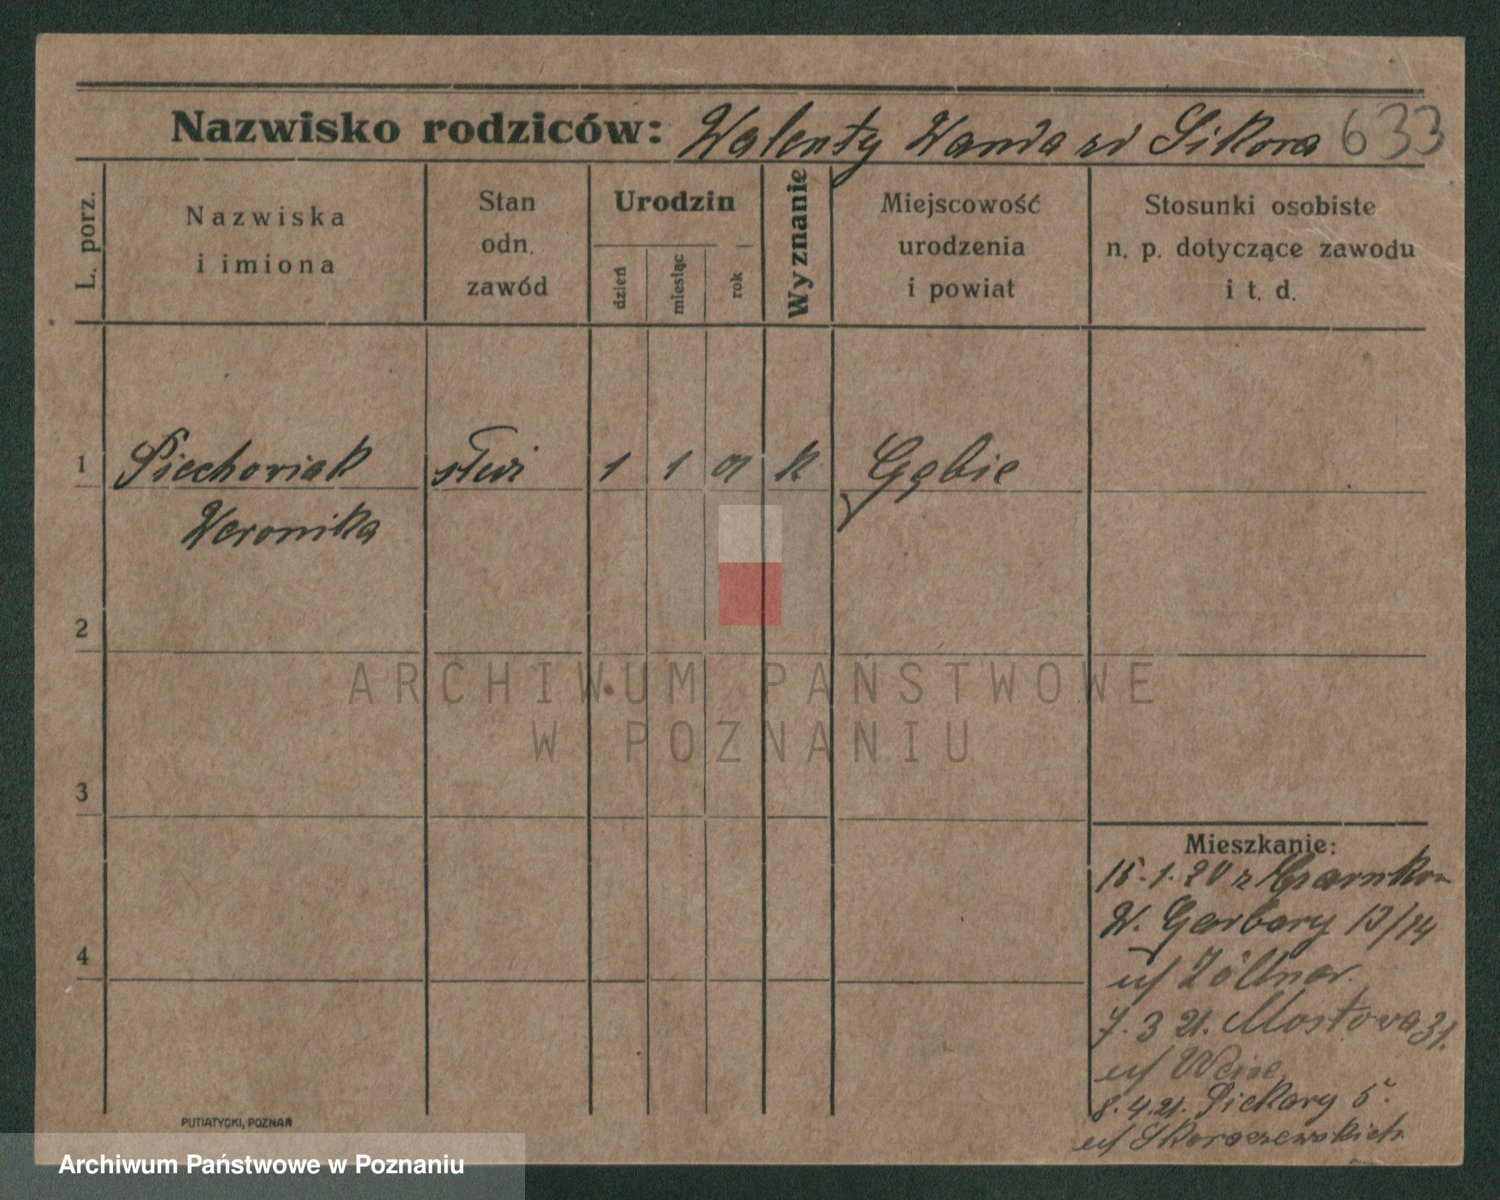 Nazwisko rodziców: Walenty Wanda zd Sikora 633
L. porz.
Nazwiska
i imiona
Stan
odn.
zawód
Urodzin
dzień
miesiąc
rok
Wyznanie
Miejscowość
urodzenia
i powiat
Stosunki osobiste
n. p. dotyczące zawodu
i t. d.
1 Piechowiak 1 1 01 k Gębic
Weronika
2
ARCHIWUM PAŃSTWOWE
W POZNANIU
3
4
Mieszkanie:
15.1.20 z Czarnkow
W. Garbary 13/14
u/ Zöllner.
7.3 21. Mostowa 31.
u/ Weise
8.4.21. Piekary 5
u/ Skoraszewskich
PUTIATYCKI, POZNAŃ
Archiwum Państwowe w Poznaniu